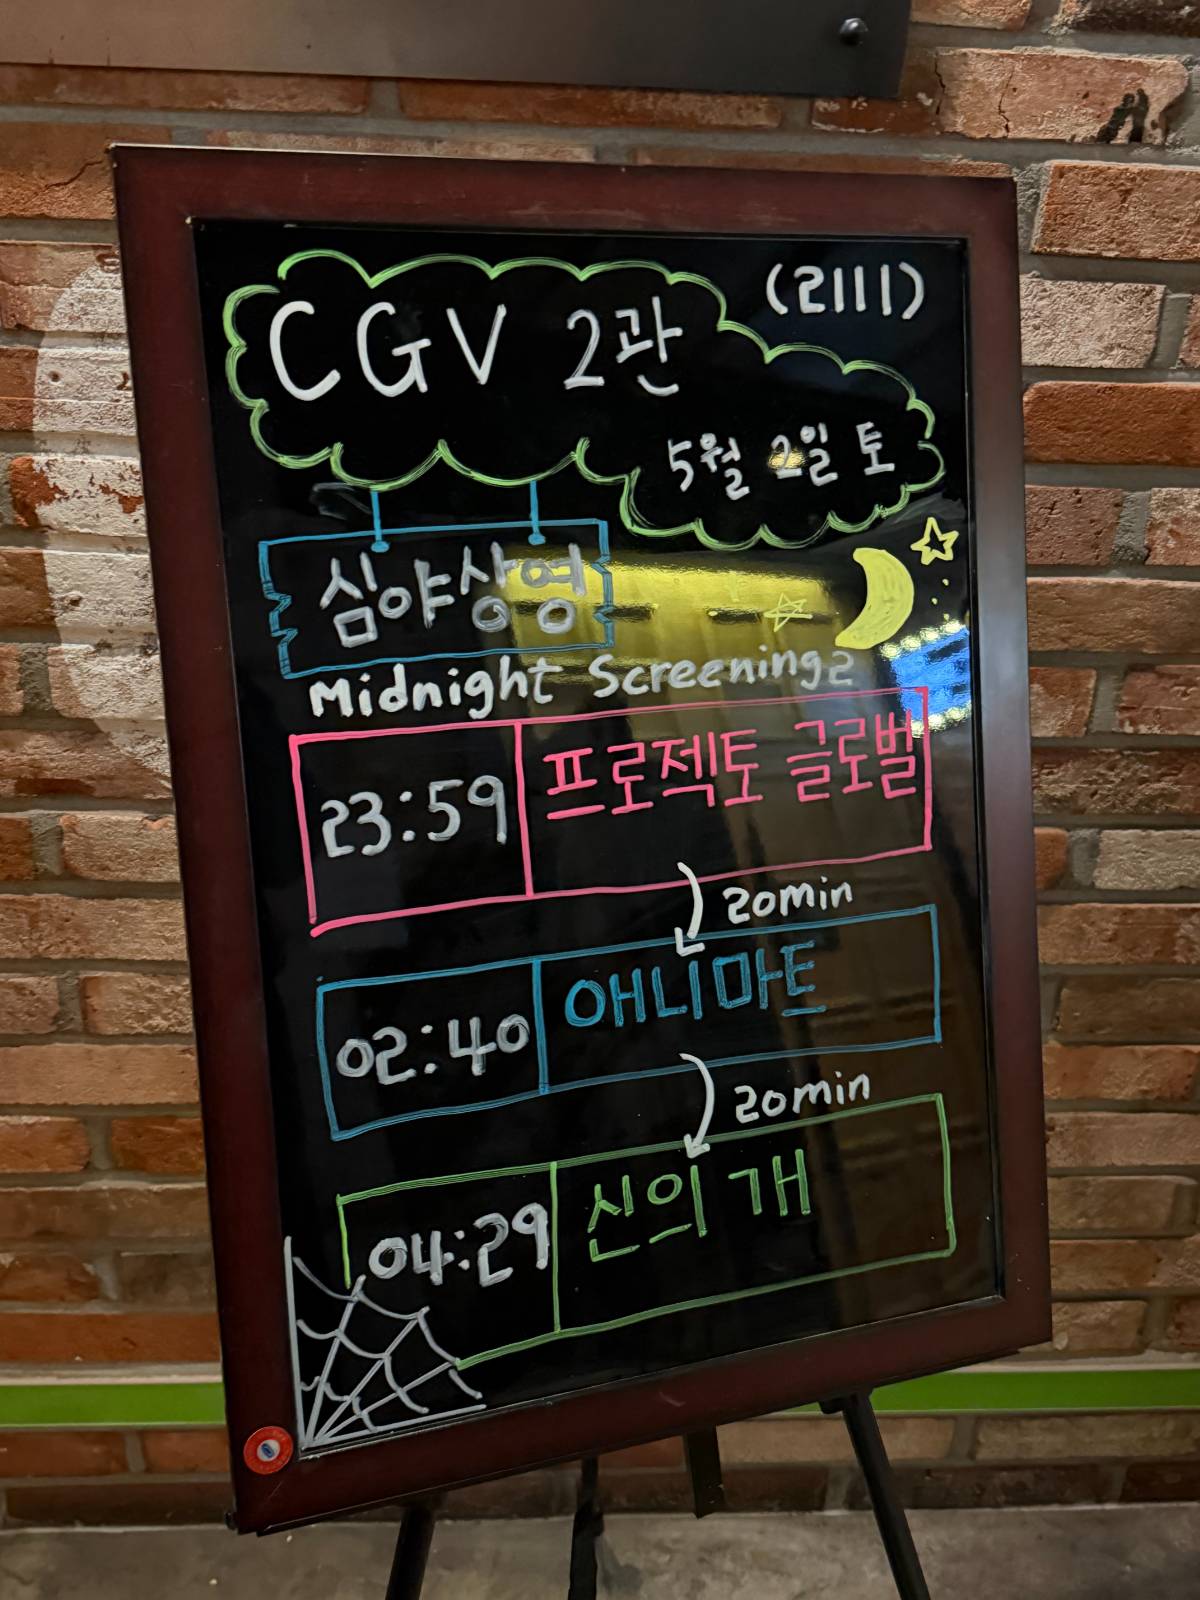 CGV 2관
(2111)
5월 2일 토
심야상영
Midnight Screening 2
23:59 프로젝트 글로벌
20min
02:40 애니마트
20min
04:29 신의 개